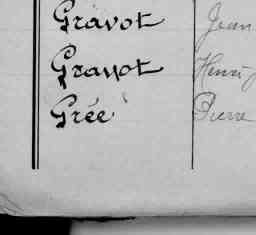 Gravot Jean
Gravot Henri
Grée Pierre